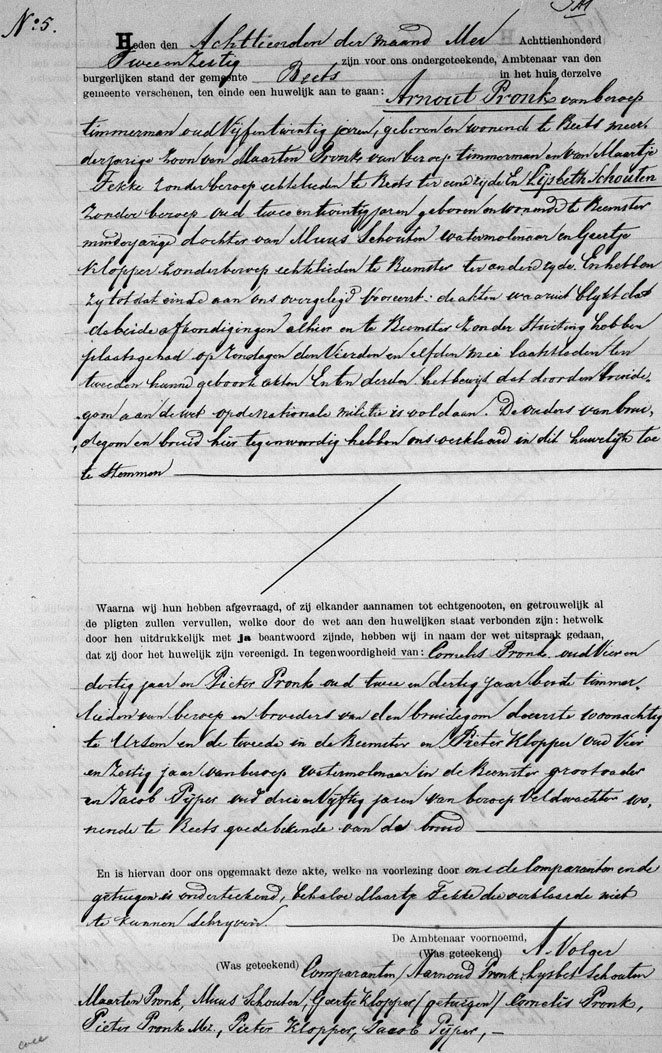 No. 5.
Heden den Achttienden der maand Mei Achttienhonderd
Twee en Zestig zijn voor ons ondergeteekende, Ambtenaar van den
burgerlijken stand der gemeente Beets in het huis derzelve
gemeente verschenen, ten einde een huwelijk aan te gaan: Arnout Pronk van beroep
timmerman oud Vijf en twintig jaren, geboren en wonende te Beets meer-
derjarige Zoon van Maarten Pronk van beroep timmerman en van Maartje
Fekke Zonder beroep echtelieden te Beets ter eenre zijde En Lijsbeth Schouten
Zonder beroep oud twee en twintig jaren geboren en wonende te Beemster
minderjarige dochter van Muus Schouten watermolenaar en Geertje
Klopper Zonder beroep echtelieden te Beemster ter andere zyde. En hebben
zy tot dat einde aan ons overgelegd Voreerst: de akten waaruit blykt dat
de beide afkondigingen alhier en te Beemster Zonder Stuiting hebben
plaats gehad op Zondagen den Vierden en elfden Mei laatstleden ten
tweeden hunne geboorte akten En ten derden het bewijs dat door den bruide-
gom aan de wet op de nationale militie is voldaan. De ouders van brui-
degom en bruid hier tegenwoordig hebben ons verklaard in dit huwelijk toe
te Stemmen
Waarna wij hun hebben afgevraagd, of zij elkander aannamen tot echtgenooten, en getrouwelijk al
de pligten zullen vervullen, welke door de wet aan den huwelijken staat verbonden zijn: hetwelk
door hen uitdrukkelijk met ja beantwoord zijnde, hebben wij in naam der wet uitspraak gedaan,
dat zij door het huwelijk zijn vereenigd. In tegenwoordigheid van: Cornelis Pronk oud Vier en
dertig jaar en Pieter Pronk oud twee en dertig jaar beide timmer-
lieden van beroep en broeders van den bruidegom de eerste woonachtig
te Ursem en de tweede in de Beemster en Pieter Klopper oud Vier
en Zestig jaar van beroep watermolenaar in de Beemster grootvader
en Jacob Pijper oud drie en Vijftig jaren van beroep Veldwachter wo-
nende te Beets goede bekende van de bruid
En is hiervan door ons opgemaakt deze akte, welke na voorlezing door ons de Comparanten en de
getuigen is ondertekend, behalve Maartje Fekke die verklaarde niet
te kunnen Schryven.
De Ambtenaar voornoemd,
(Was geteekend) A. Volger
(Was geteekend) Comparanten / Aarnoud Pronk, Lysbet Schouten
Maarten Pronk, Muus Schouten / Geertje Klopper / getuigen / Cornelis Pronk,
Pieter Pronk Mz., Pieter Klopper, Jacob Pijper, –